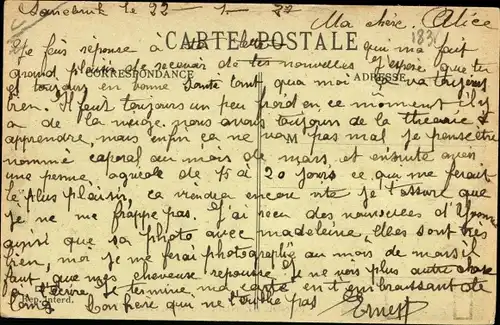 Sarrebruck le 22 - 1 - 22
Ma chère Alice 1830
CARTE POSTALE
CORRESPONDANCE
ADRESSE
Je fais réponse à ta qui ma fait
grand plaisir de recevoir de tes nouvelles j'espere que tu
et toujours en bonne santé tant qua moi ça va toujours
bien. Il faut toujours un peu froid en ce moment il y
a de la neige, nous avons toujours de la théorie à
apprendre, mais enfin ça ne va pas mal je pense être
M
nommé caporal au mois de mars, et ensuite avoir
une perme agricole de 15 à 20 jours ce qui me ferait
le plus plaisir, ça viendra encore vite je t'assure que
je ne me frappe pas. J'ai recu des nouvelles d'Yvonne
ainsi que sa photo avec madeleine, elles sont très
bien, moi je me ferai photographié au mois de mars il
faut que mes cheveux repousse. Je ne vois plus autre chose
a t'écrire. Je termine ma carte en t'embrassant de
loin Ton frere qui ne t'oublie pas Ernest
Rep. Interd.